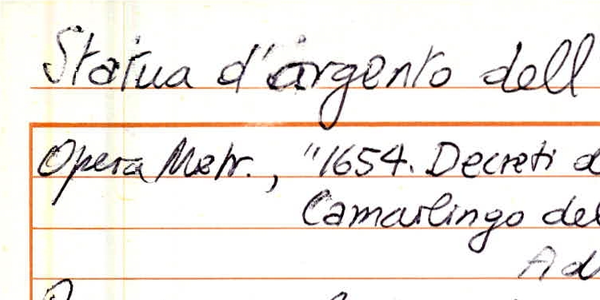 Statua d'argento dell
Opera Metr., "1654. Decreti d
Camarlingo del
Ad